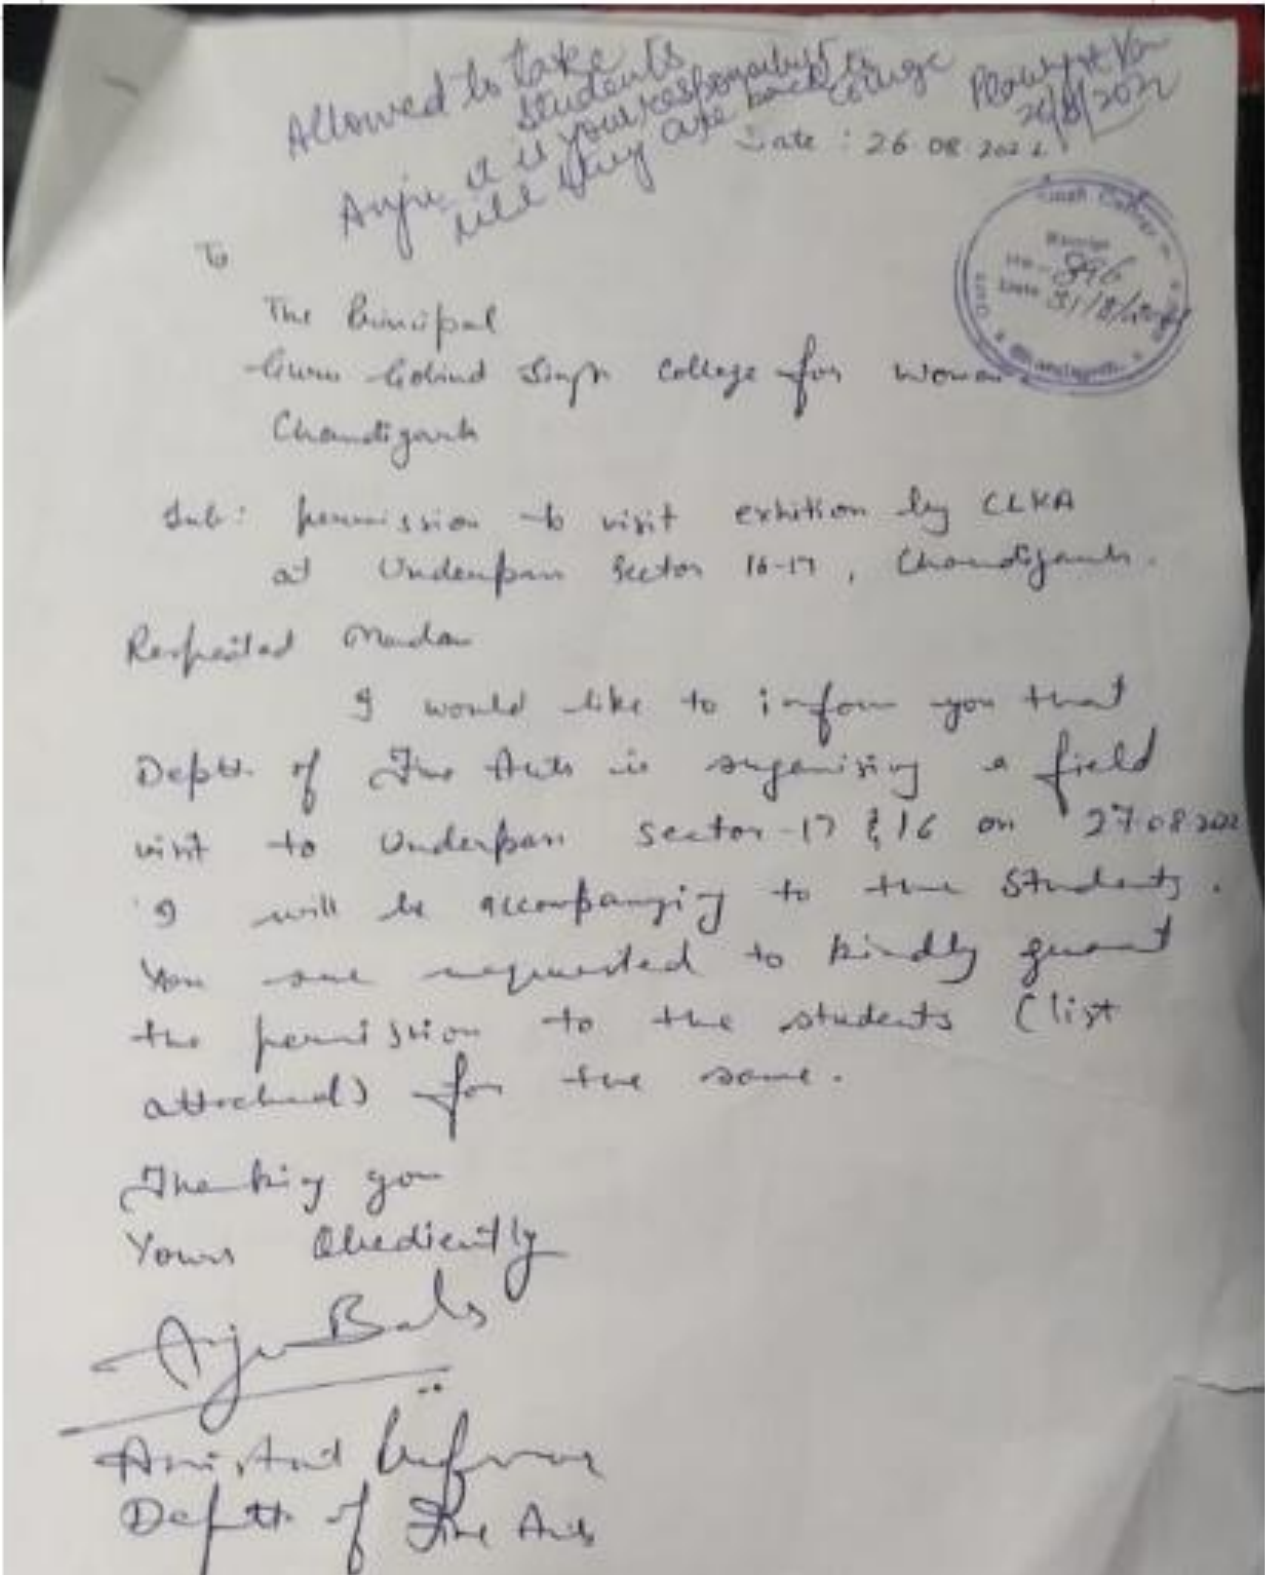 Allowed to take
students
Anju it is your responsibility
till they are back to
college
26/8/2022
Date : 26.08.2022
Receipt
No - 896
Date 31/8/2022
Chandigarh
To
The Principal
Guru Gobind Singh College for Women
Chandigarh
Sub: permission to visit exhition by CLKA
at Underpass Sector 16-17, Chandigarh.
Respected Madam
I would like to inform you that
Deptt. of Fine Arts is organising a field
visit to Underpass Sector-17 & 16 on 27.08.2022
I will be accompanying to the Students.
You are requested to kindly grant
the permission to the students (list
attached) for the same.
Thanking you
Yours Obediently
Anju Bala
Assistant Professor
Deptt. of Fine Arts